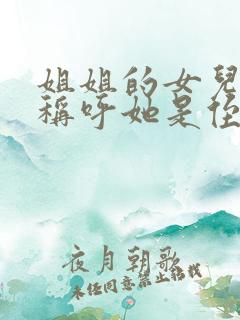 姐姐的女兒
稱呼她是侄
夜月朝歌
未经同意禁止转载